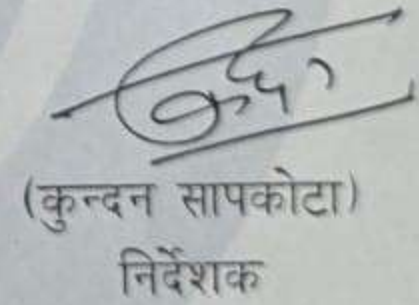 (कुन्दन सापकोटा)
निर्देशक